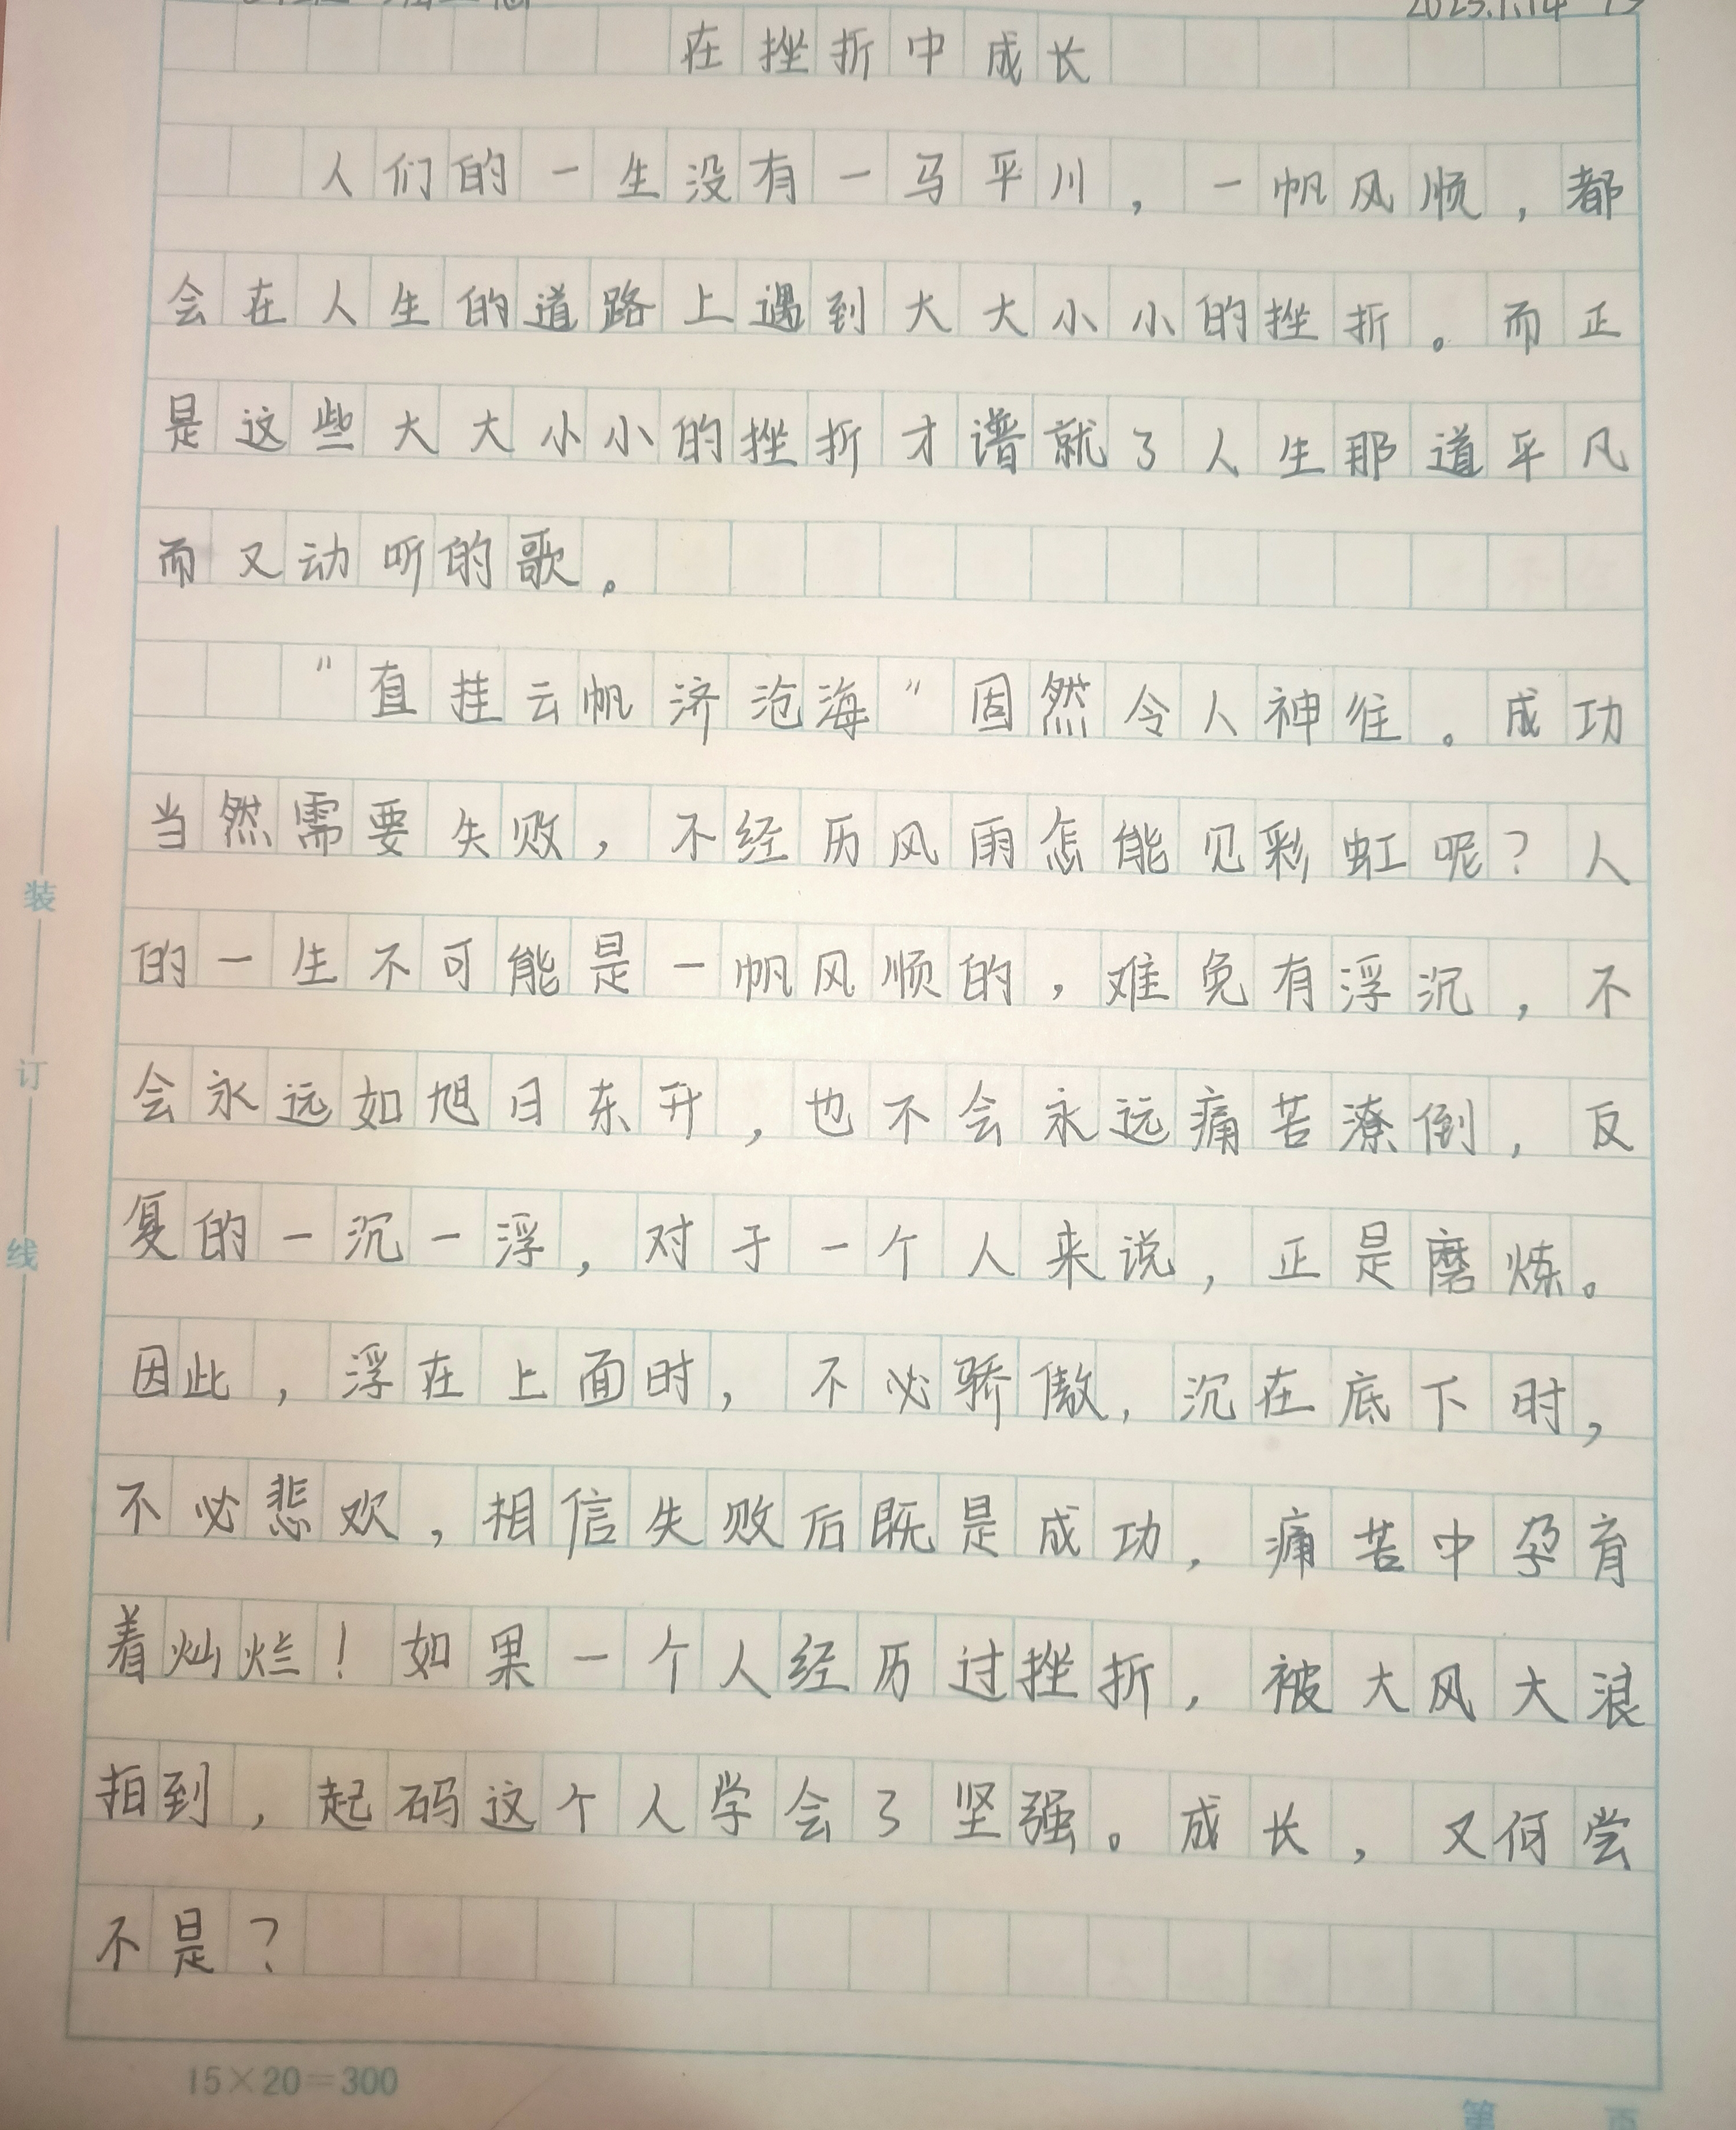 2023.1.14
在挫折中成长
人们的一生没有一马平川，一帆风顺，都
会在人生的道路上遇到大大小小的挫折。而正
是这些大大小小的挫折才谱就了人生那道平凡
而又动听的歌。
"直挂云帆济沧海"固然令人神往。成功
当然需要失败，不经历风雨怎能见彩虹呢？人
的一生不可能是一帆风顺的，难免有浮沉，不
会永远如旭日东升，也不会永远痛苦潦倒，反
复的一沉一浮，对于一个人来说，正是磨炼。
因此，浮在上面时，不必骄傲，沉在底下时，
不必悲欢，相信失败后既是成功，痛苦中孕育
着灿烂！如果一个人经历过挫折，被大风大浪
拍到，起码这个人学会了坚强。成长，又何尝
不是？
装
订
线
15×20=300
第 页